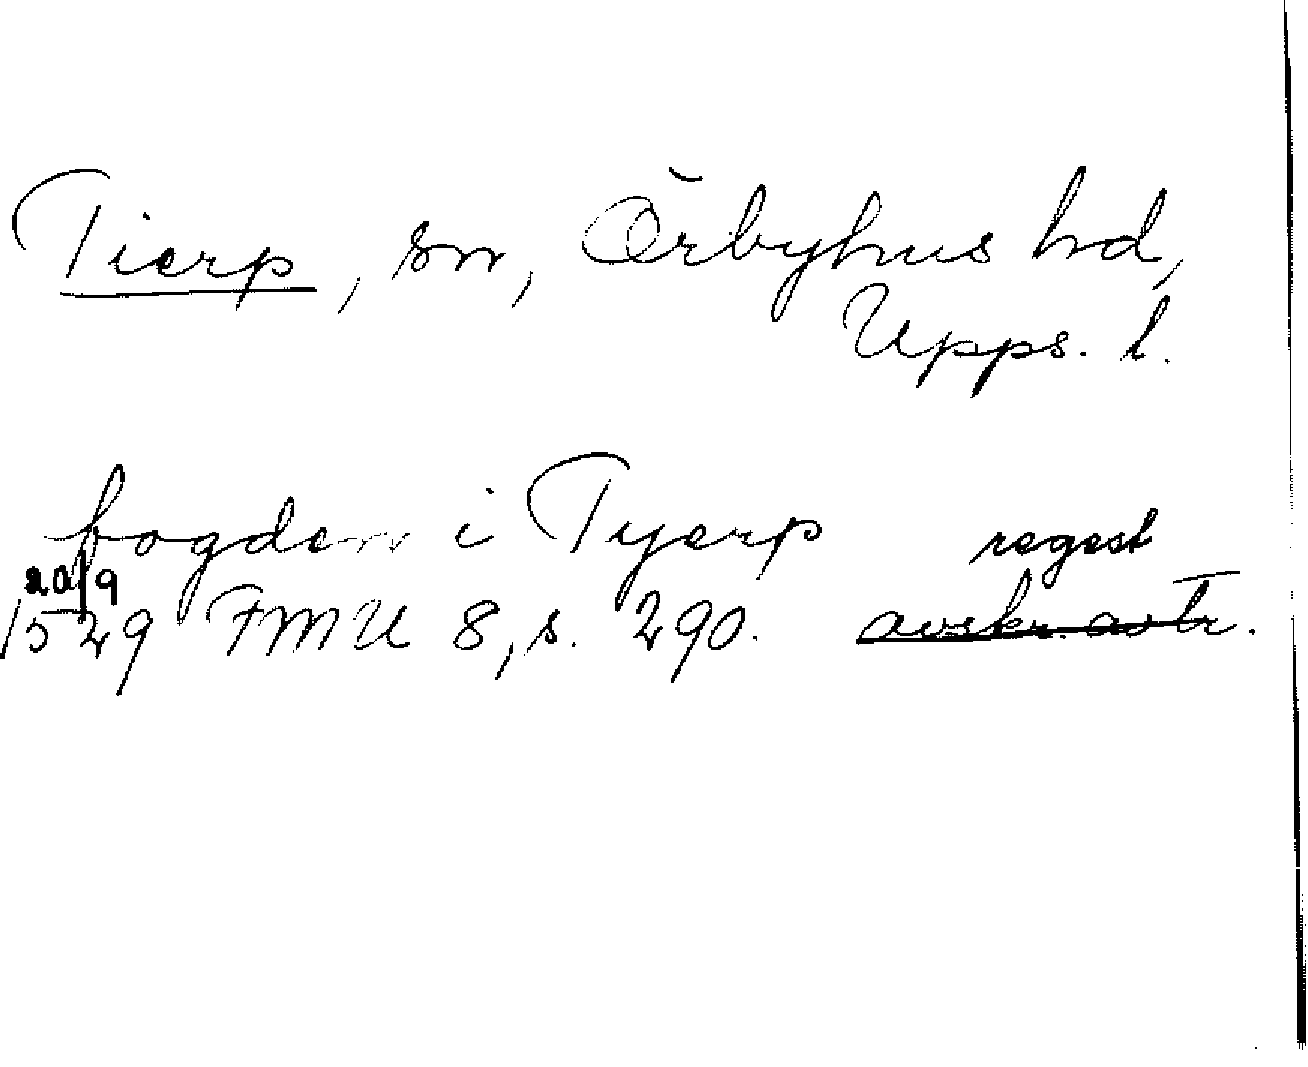 Tierp, sn, Örbyhus hd,
Upps. l.
fogden i Tyerp regest
20/9
1529 FMU 8, s. 290. avskr. avtr.